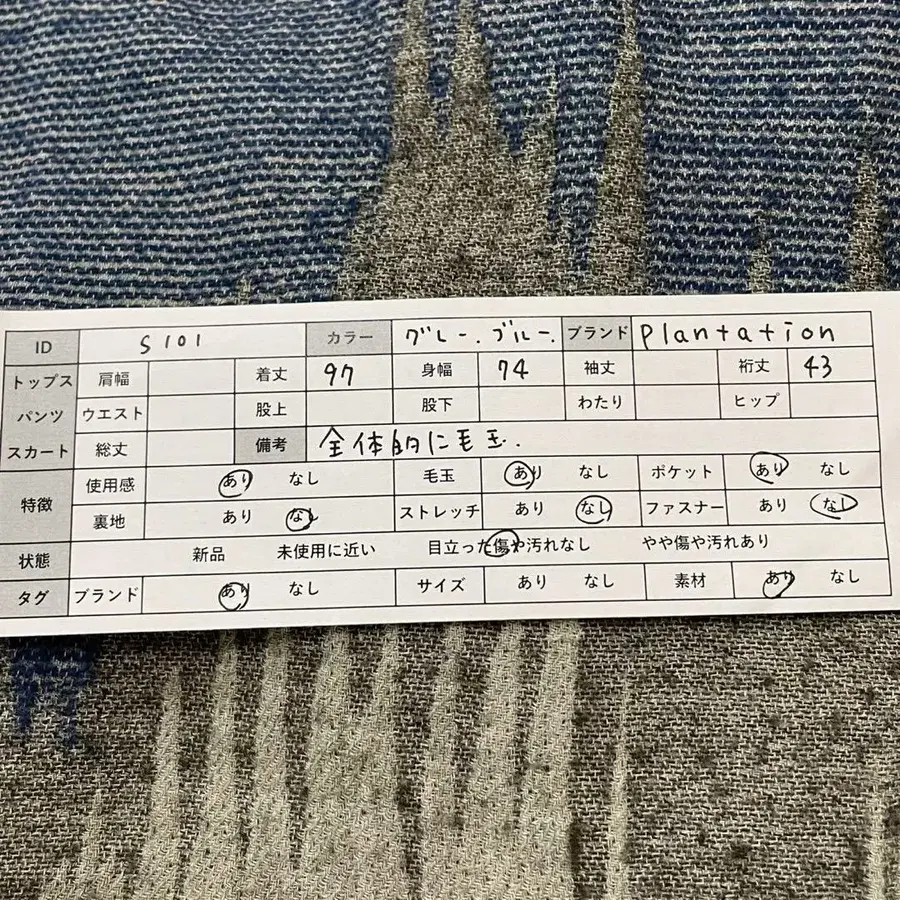 ID S101 カラー グレー.ブルー. ブランド Plantation
トップス 肩幅 着丈 97 身幅 74 袖丈 裄丈 43
パンツ ウエスト 股上 股下 わたり ヒップ
スカート 総丈 備考 全体的に毛玉.
特徴 使用感 あり なし 毛玉 あり なし ポケット あり なし
裏地 あり なし ストレッチ あり なし ファスナー あり なし
状態 新品 未使用に近い 目立った傷や汚れなし やや傷や汚れあり
タグ ブランド あり なし サイズ あり なし 素材 あり なし